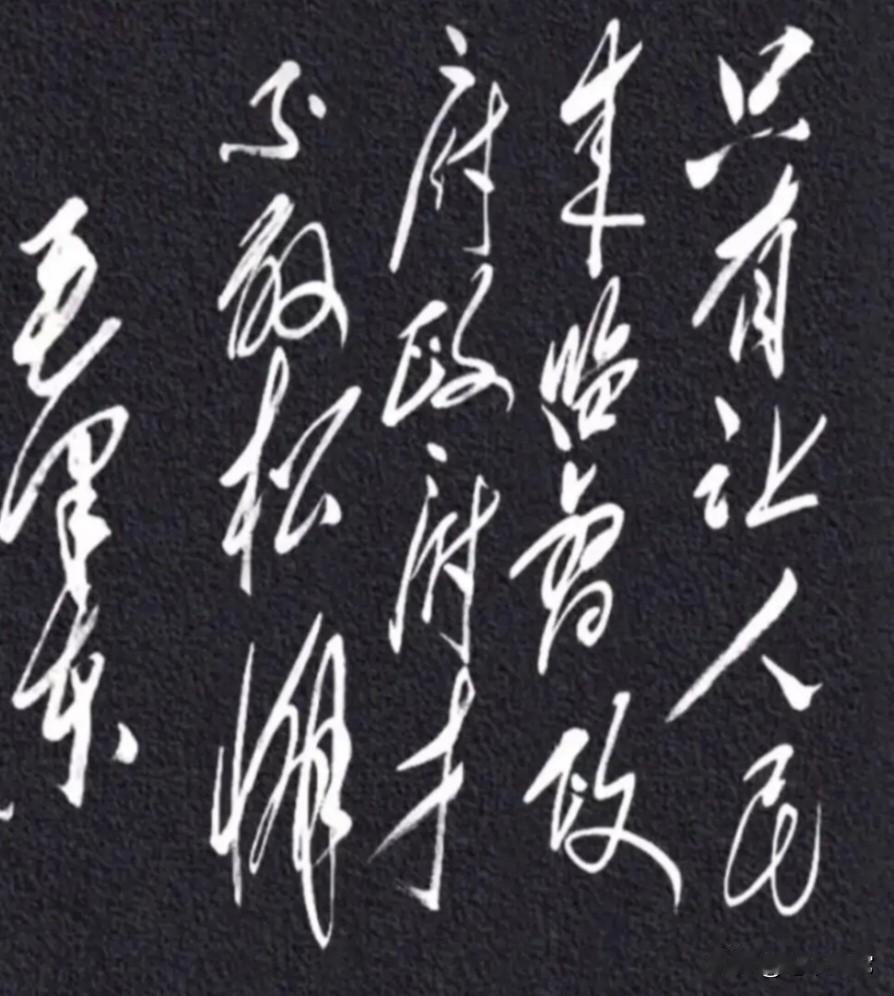 只有让人民
来监督政
府政府才
不敢松懈
毛泽东